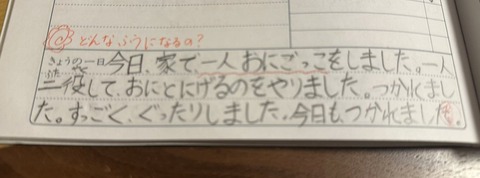 どんなふうになるの?
きょうの一日 今日、家で一人おにごっこをしました。一人
二役して、おにとにげるのをやりました。つかれまし
た。すっごく、ぐったりしました。今日もつかれました。